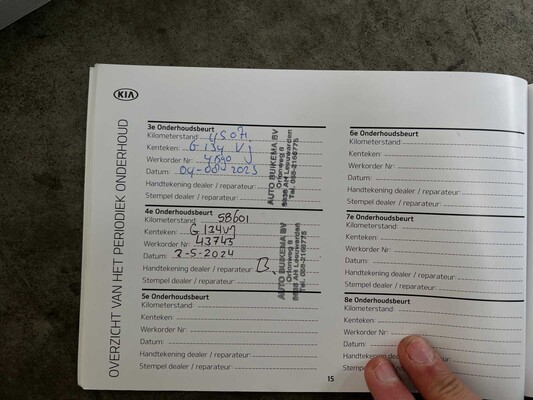 KIA
OVERZICHT VAN HET PERIODIEK ONDERHOUD
3e Onderhoudsbeurt
Kilometerstand:
Kenteken: G 134 Vj
Werkorder Nr:
Datum: 2023
Handtekening dealer / reparateur:
Stempel dealer / reparateur:
AUTO BUIKEMA BV
Orionweg 6
8938 AH Leeuwarden
Tel. 058-2166775
4e Onderhoudsbeurt
Kilometerstand: 58601
Kenteken: G 134VJ
Werkorder Nr: 43745
Datum: 2-5-2024
Handtekening dealer / reparateur:
Stempel dealer / reparateur:
AUTO BUIKEMA BV
Orionweg 6
8938 AH Leeuwarden
Tel. 058-2166775
5e Onderhoudsbeurt
Kilometerstand:
Kenteken:
Werkorder Nr:
Datum:
Handtekening dealer / reparateur:
Stempel dealer / reparateur:
6e Onderhoudsbeurt
Kilometerstand:
Kenteken:
Werkorder Nr:
Datum:
Handtekening dealer / reparateur:
Stempel dealer / reparateur:
7e Onderhoudsbeurt
Kilometerstand:
Kenteken:
Werkorder Nr:
Datum:
Handtekening dealer / reparateur:
Stempel dealer / reparateur:
8e Onderhoudsbeurt
Kilometerstand:
Kenteken:
Werkorder Nr:
Datum:
Handtekening
Stempel
15